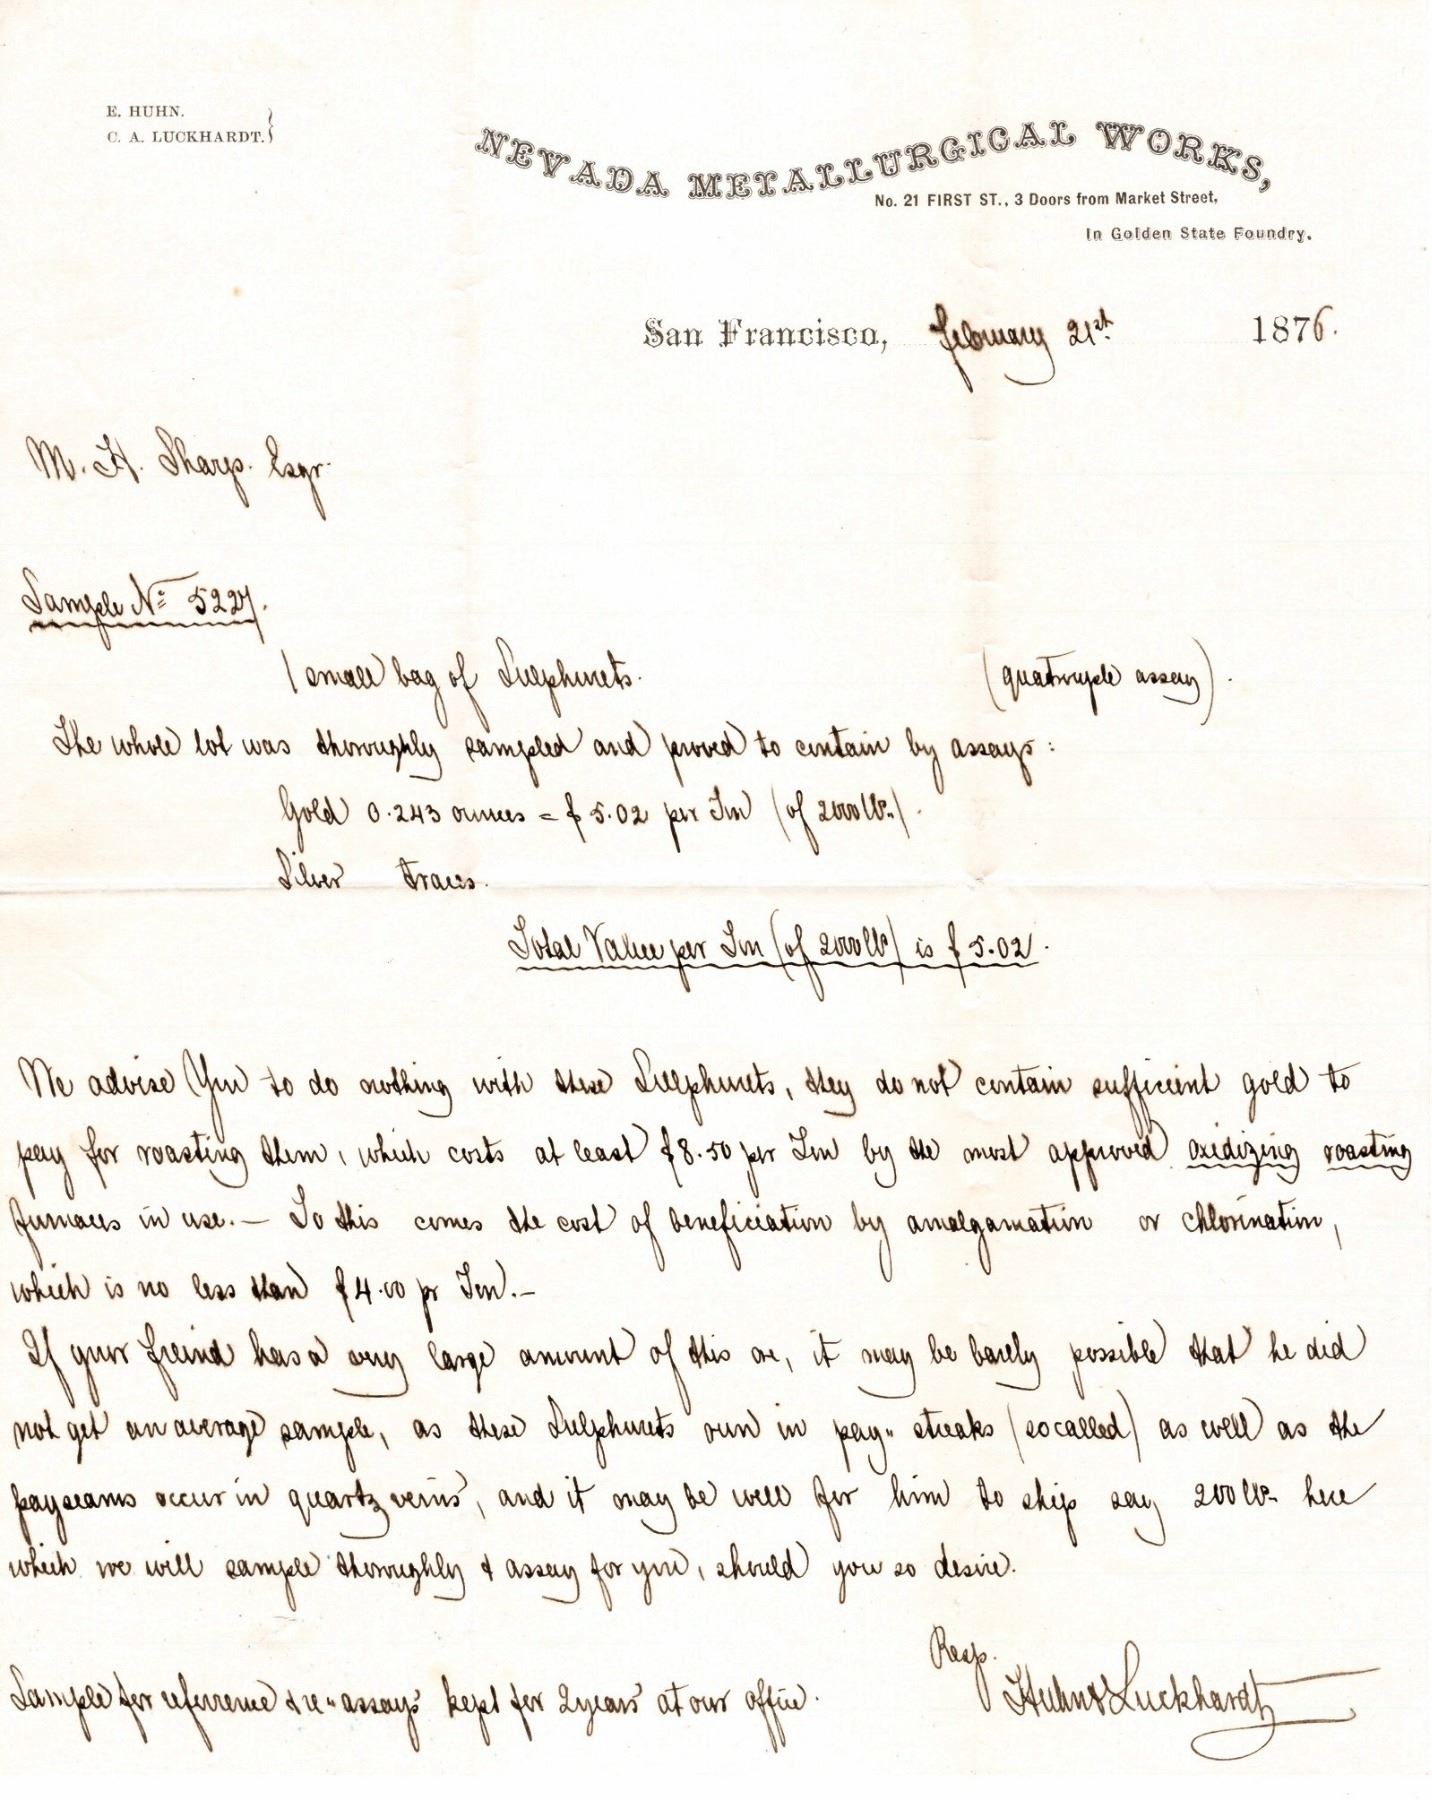 E. HUHN.
C. A. LUCKHARDT.
NEVADA METALLURGICAL WORKS,
No. 21 FIRST ST., 3 Doors from Market Street,
In Golden State Foundry.
San Francisco, February 21st 1876.
M. H. Sharp. Esqr.
Sample No 5227.
1 small bag of Sulphurets. (quatruple assay).
The whole lot was thoroughly sampled and proved to contain by assays:
Gold 0.243 ounces = $5.02 per Ton (of 2000 lbs.).
Silver traces.
Total Value per Ton (of 2000 lbs) is $5.02.
We advise You to do nothing with these Sulphurets, they do not contain sufficient gold to
pay for roasting them, which costs at least $8.50 per Ton by the most approved oxidizing roasting
furnaces in use. — To this comes the cost of beneficiation by amalgamation or chlorination,
which is no less than $4.00 pr Ton. —
If your freind has a very large amount of this ore, it may be barely possible that he did
not get an average sample, as these Sulphurets run in pay-streaks (so called) as well as the
payseams occur in quartz veins, and it may be well for him to ship say 200 lbs here
which we will sample thoroughly & assay for you, should you so desire.
Resp.
Huhn & Luckhardt
Sample for referrence & re-assays kept for 2 years at our office.